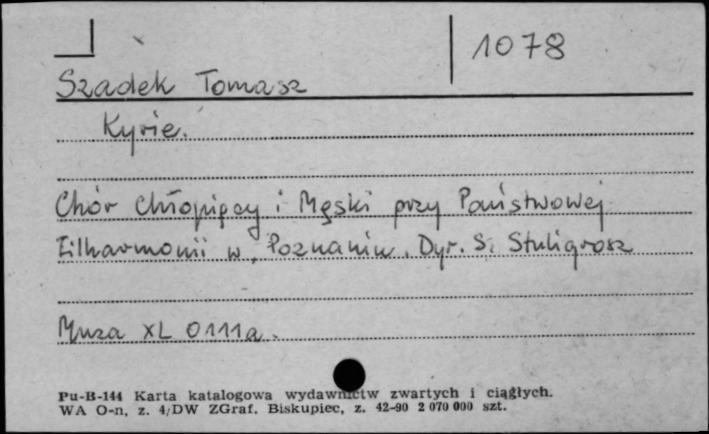 1078
Szadek Tomasz
Kyrie.
Chór Chłopięcy i Męski przy Państwowej
Filharmonii w Poznaniu. Dyr. S. Stuligrosz
Muza XL 0111a.
Pu-B-144 Karta katalogowa wydawnictw zwartych i ciągłych.
WA O-n, z. 4/DW ZGraf. Biskupiec, z. 42-90 2 070 000 szt.